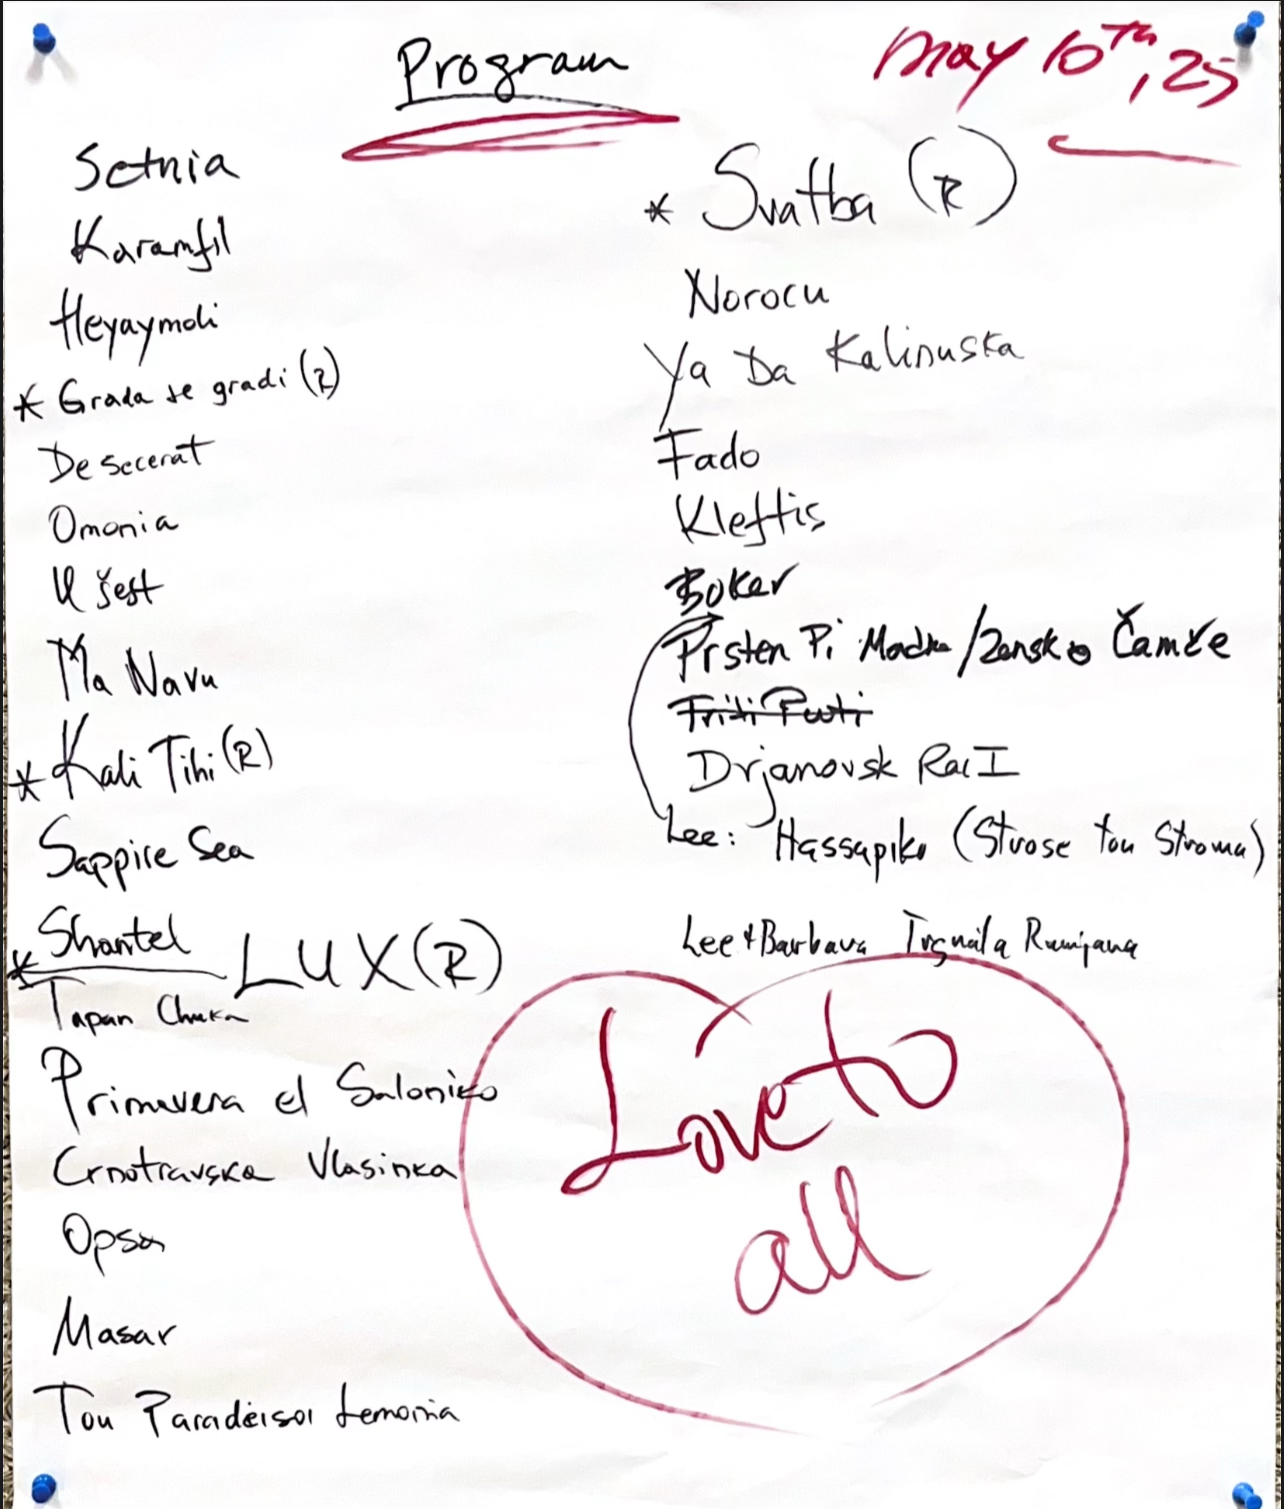 Program
May 10th, 25
Setnia
Karamfil
Heyaymoli
* Grada se gradi (R)
De secerat
Omonia
U šest
Ma Navu
* Kali Tihi (R)
Sappire Sea
Shantel
* LUX (R)
Tapan Chuka
Primavera el Saloniko
Crnotravska Vlasinka
Opsa
Masar
Tou Paradeisoi Lemonia
* Svatba (R)
Norocu
Ya Da Kalinuska
Fado
Kleftis
Boker
Prsten Pi Madka / Zensko Čamče
Friti Puti
Drjanovsk Rac I
Lee: Hassapiko (Strose tou Stroma)
Lee + Barbara Trgnala Rumjana
Love to
all